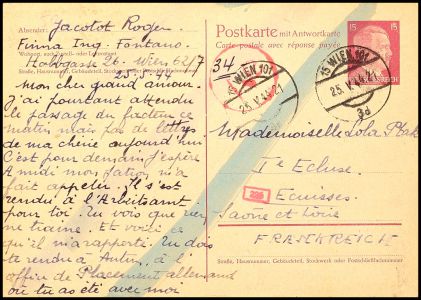 Absender: Jacolot Roger
Firma Ing. Fontano.
Wohnort, auch Zustell- oder Leitpostamt
Hobbgasse 26. Wien 62/7
Straße, Hausnummer, Gebäudeteil, Stockwerk
25.5.44
Mon cher grand amour.
J'ai pourtant attendu
le passage du facteur ce
matin mais pas de lettres
de ma chérie aujourd'hui
C'est pour demain j'espère
A midi mon patron m'a
fait appeler. Il s'est
rendu à l'Arbeitsamt
pour toi. Tu vois que rien
ne traine. Et voici ce
qu'il m'a rapporté. Tu dois
te rendre à Autun, à l'
office de Placement allemand
où tu as été avec moi
Postkarte mit Antwortkarte
Carte postale avec réponse payée
15 15
34
15 WIEN 101
25. V. 44. 21
15 WIEN 101
25. V. 44. 21
3d
Mademoiselle Lola
1e Ecluse
Ecuisses
Saône et Loire
FRANKREICH
Straße, Hausnummer, Gebäudeteil, Stockwerk oder Postschließfachnummer